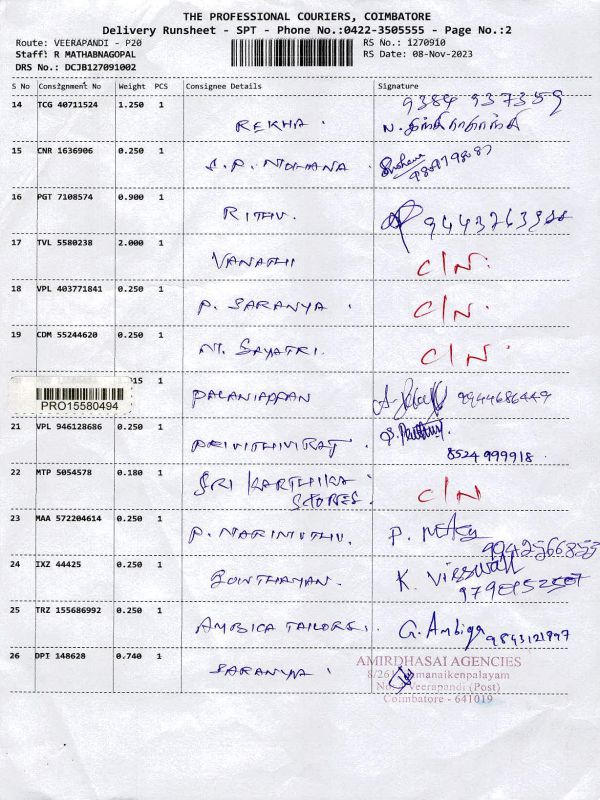 THE PROFESSIONAL COURIERS, COIMBATORE
Delivery Runsheet - SPT - Phone No.:0422-3505555 - Page No.:2
Route: VEERAPANDI - P20
RS No.: 1270910
Staff: R MATHABNAGOPAL
RS Date: 08-Nov-2023
DRS No.: DCJB127091002
S No Consignment No Weight PCS Consignee Details Signature
14 TCG 40711524 1.250 1 REKHA. 9384 937359
15 CNR 1636906 0.250 1 S.P. MOHANA
16 PGT 7108574 0.900 1 RITHU.
17 TVL 5580238 2.000 1 VANATHI C/N.
18 VPL 403771841 0.250 1 P. SARANYA. C/N.
19 CDM 55244620 0.250 1 M. GAYATRI. C/N.
PRO15580494 1 PALANIAPPAN 9944686449
21 VPL 946128686 0.250 1 PRIVITHIVIRAJ. 8524 999918.
22 MTP 5054578 0.180 1 SRI KARTHIKA
STORES. C/N
23 MAA 572204614 0.250 1 P. NARIMUTHU. P.
24 IXZ 44425 0.250 1 GOINTHAYAN. K.
25 TRZ 155686992 0.250 1 AMBICA TAILORS. G. Ambiga 9843121997
26 DPI 148628 0.740 1 SARANYA.
AMIRDHASAI AGENCIES
Veerapandi (Post)
Coimbatore - 641019